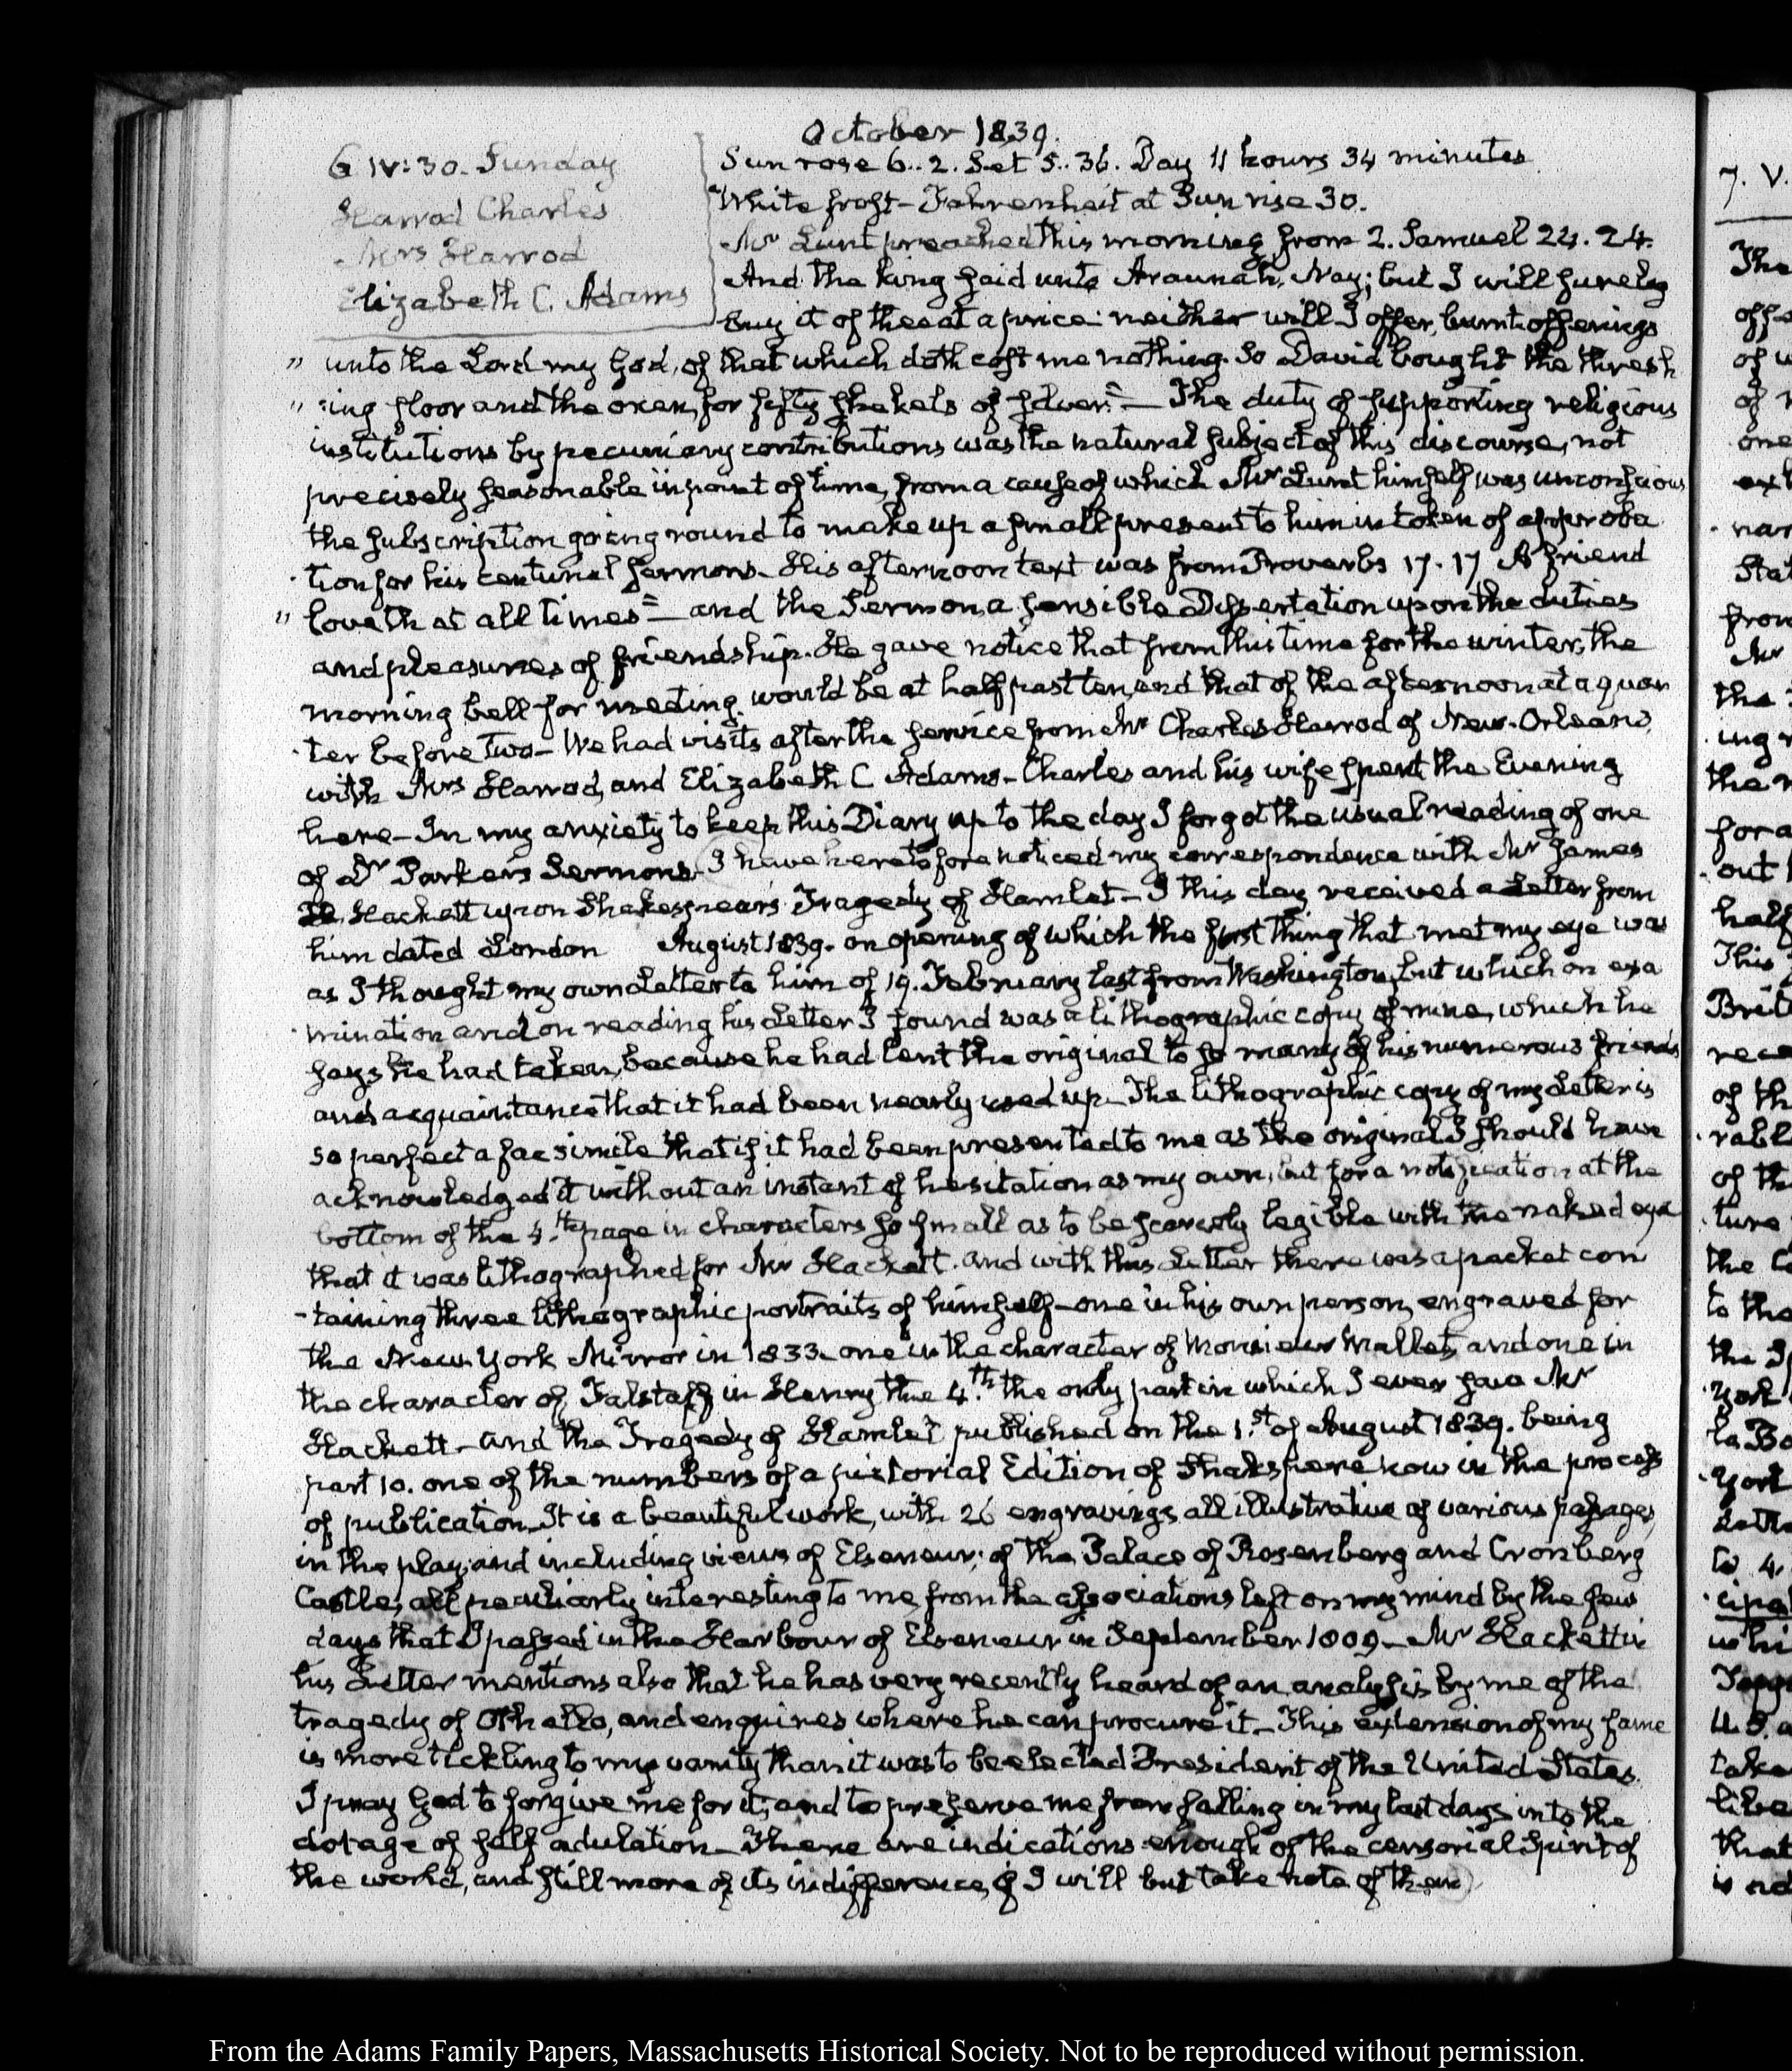 October 1839.
6 IV:30. Sunday
Harrod Charles
Mrs Harrod
Elizabeth C. Adams
Sun rose 6..2. Set 5..36. Day 11 hours 34 minutes
White frost – Fahrenheit at Sun rise 30.
Mr Lunt preached this morning from 2. Samuel 24. 24.
And the king said unto Araunah, Nay; but I will surely
buy it of thee at a price: neither will I offer, burnt offerings
" unto the Lord my God, of that which doth cost me nothing. So David bought the thresh
" :ing floor and the oxen, for fifty shekels of silver." — The duty of supporting religious
institutions by pecuniary contributions was the natural subject of this discourse, not
precisely seasonable in point of time, from a cause of which Mr Lunt himself was unconscious
the subscription going round to make up a small present to him in token of approba
-tion for his centurial Sermons. His afternoon text was from Proverbs 17. 17 A friend
" loveth at all times" — and the Sermon a sensible Dissertation upon the duties
and pleasures of friendship. He gave notice that from this time for the winter, the
morning bell for meeting, would be at half past ten, and that of the afternoon at a quar
-ter before Two – We had visits after the service from Mr Charles Harrod of New-Orleans,
with Mrs Harrod, and Elizabeth C Adams – Charles and his wife spent the Evening
here – In my anxiety to keep this Diary up to the day I forgot the usual reading of one
of Dr Parker's Sermons. I have heretofore noticed my correspondence with Mr James
H. Hackett upon Shakespear's Tragedy of Hamlet – I this day received a Letter from
him dated London August 1839. on opening of which the first thing that met my eye was
as I thought my own Letter to him of 19. February last from Washington, but which on exa
-mination and on reading his Letter I found was a lithographic copy of mine, which he
says he had taken, because he had lent the original to so many of his numerous friends
and acquaintance that it had been nearly used up – The lithographic copy of my Letter is
so perfect a fac simile that if it had been presented to me as the original I should have
acknowledged it without an instant of hesitation as my own, but for a notification at the
bottom of the 4.th page in characters so small as to be scarcely legible with the naked eye
that it was lithographed for Mr Hackett. and with this Letter there was a packet con
-taining three lithographic portraits of himself – one in his own person, engraved for
the New. York Mirror in 1833. one in the character of Monsieur Mallet, and one in
the character of Falstaff in Henry the 4.th the only part in which I ever saw Mr
Hackett – and the Tragedy of Hamlet published on the 1.st of August 1839. being
part 10. one of the numbers of a pictorial Edition of Shakspere now in the process
of publication – It is a beautiful work, with 26 engravings, all illustrative of various passages,
in the play, and including views of Elseneur; of the Palace of Rosenberg and Cronberg
Castle, all peculiarly interesting to me from the associations left on my mind by the few
days that I passed in the Harbour of Elseneur in September 1809 – Mr Hackett in
his Letter mentions also that he has very recently heard of an analysis by me of the
tragedy of Othello, and enquires where he can procure it – This extension of my fame
is more tickling to my vanity than it was to be elected President of the United States.
I pray God to forgive me for it, and to preserve me from falling in my last days into the
dotage of self adulation – There are indications enough of the censorial Spirit of
the world, and still more of its indifference, if I will but take note of them
7. V.
The
of
one
nar
Stat
from
Mr
the
ing
the
for a
out
half
This
rece
of th
rabl
of the
ture
the
to the
the
York
to Bo
York
cipal
whi
take
that
From the Adams Family Papers, Massachusetts Historical Society. Not to be reproduced without permission.